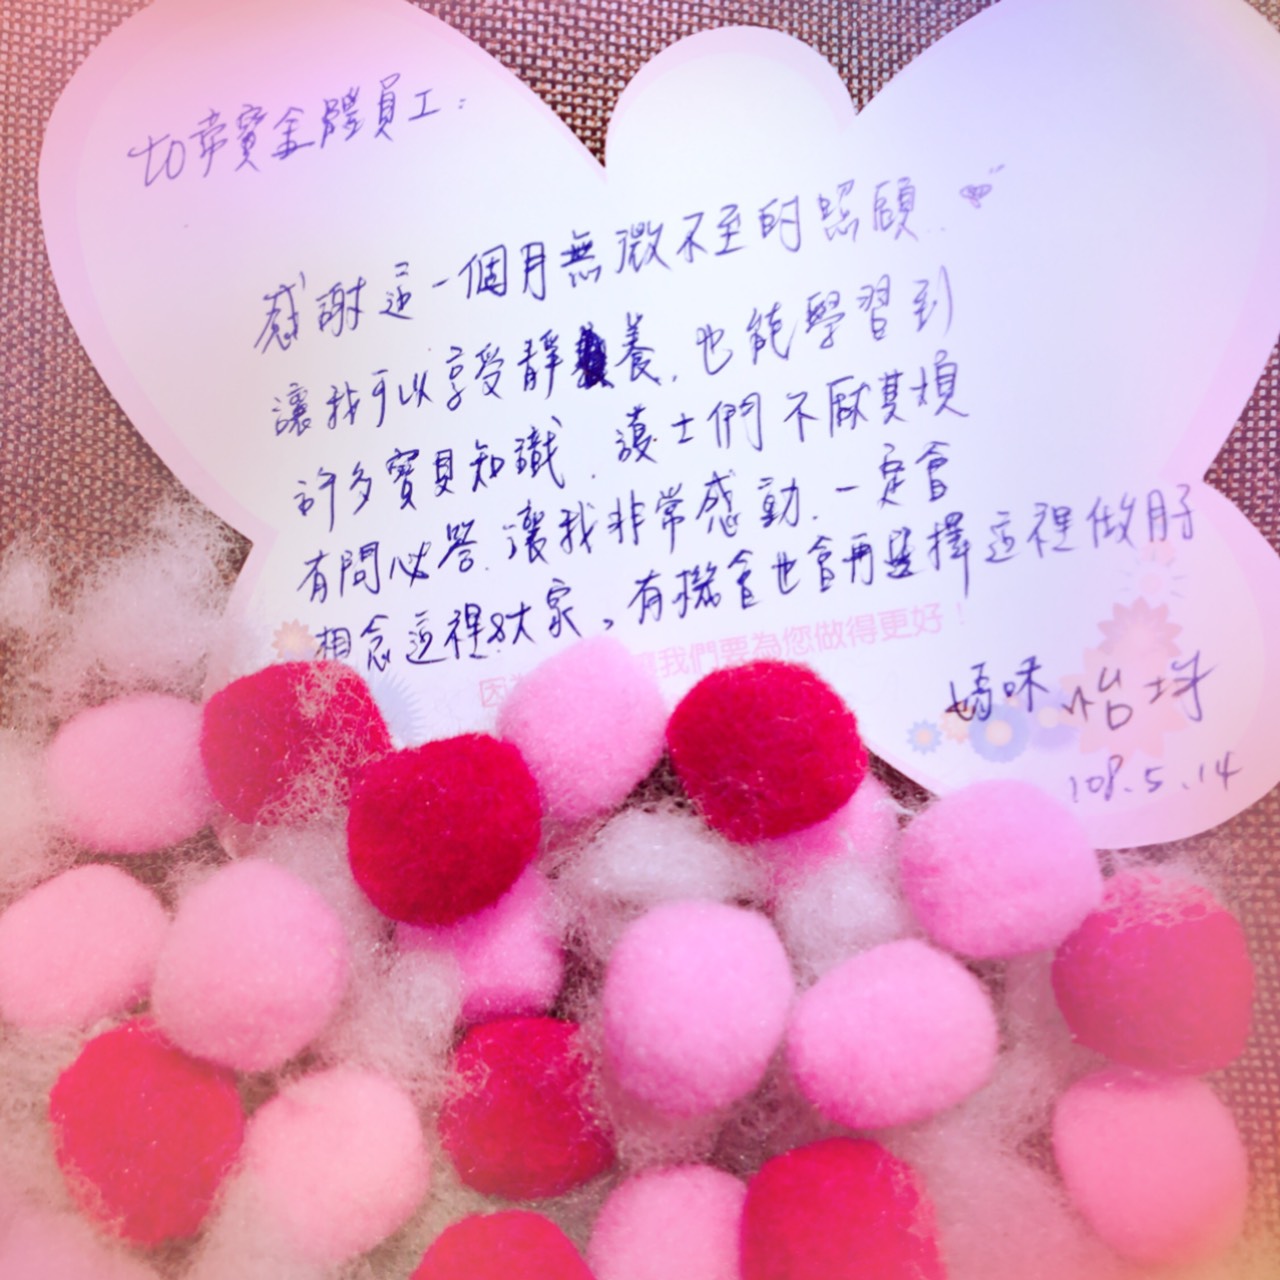 寶全體員工：
感謝這一個月無微不至的照顧..
讓我可以享受靜養，也能學習到
許多寶貝知識．護士們不厭其煩
有問必答．讓我非常感動．一定會
相念這裡的大家。有機會也會再選擇這裡做月子
我們要為您做得更好！
媽咪 怡
108.5.14